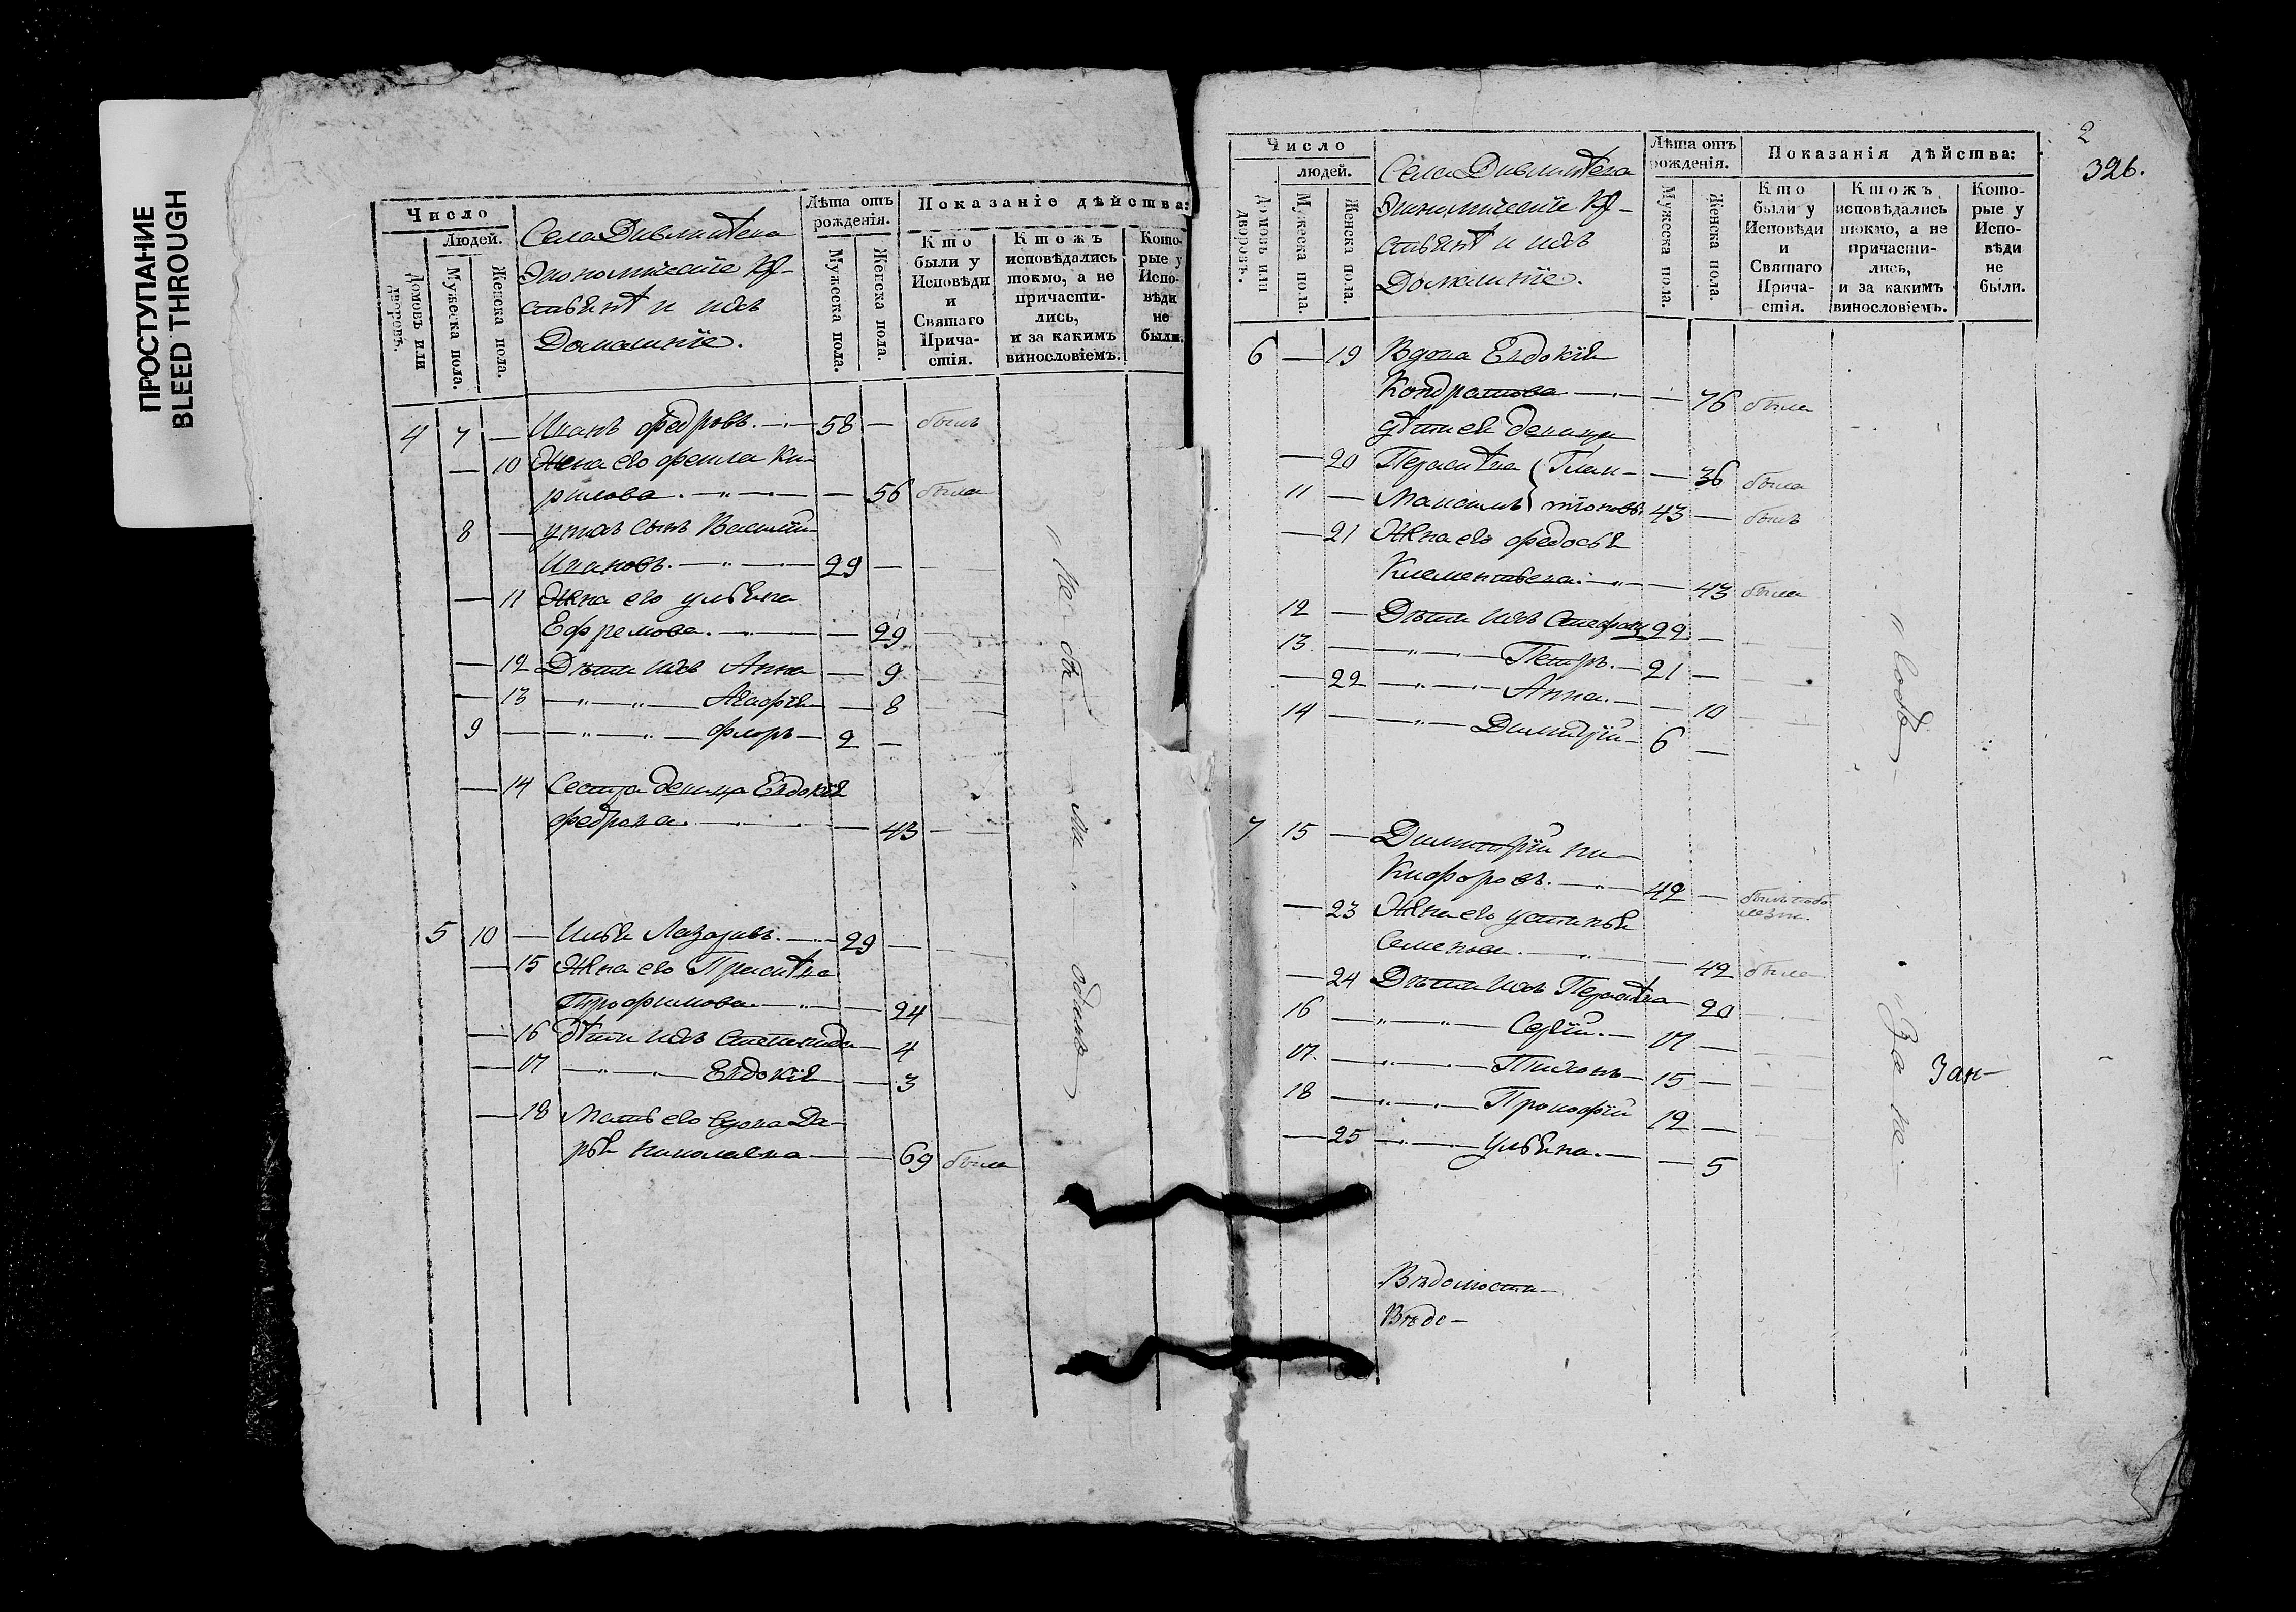 ПРОСТУПАНИЕ
BLEED THROUGH
Число
Людей.
Домовъ или дворовъ.
Мужеска пола.
Женска пола.
Села
Экономическïе Кр-
стьянѣ и ихъ
Домашнïе.
Лѣта отъ рожденїя.
Мужеска пола.
Женска пола.
Показанїе дѣйства:
Кто были у Исповѣди и Святаго Прича-стїя.
Ктожъ исповѣдались токмо, а не причасти-лись, и за какимъ винословїемъ.
Кото-рые у Испо-вѣди не были.
4 7 — Иванъ Федровъ. — 58 — былъ
— 10 Жена его Фекла Ки-
рилова. — — 56 была
8 — у нихъ сынъ Василïй
Ивановъ. — 29 —
— 11 Жена его Ульяна
Ефремова. — — 29
— 12 Дѣти ихъ Анна — 9
— 13 — Агафïя — 8
9 — — Флоръ — 2 —
— 14 Сестра девица Евдокïя
Федрова. — — 43 —
5 10 — Илья Лазаревъ. — 29 —
— 15 Жена его Прасковья
Трофимова — — 24
— 16 дѣти ихъ Степанида — 4
— 17 — Евдокïя — 3
— 18 Мать его вдова Да-
рья Николаева — — 69 была
2
326.
Число
людей.
Домовъ или дворовъ.
Мужеска пола.
Женска пола.
Села
Экономическïе Кр-
стьянѣ и ихъ
Домашнïе.
Лѣта отъ рожденїя.
Мужеска пола.
Женска пола.
Показанїя дѣйства:
Кто были у Исповѣди и Святаго Прича-стїя.
Ктожъ исповѣдались токмо, а не причасти-лись, и за какимъ винословїемъ.
Кото-рые у Испо-вѣди не были.
6 — 19 Вдова Евдокïя
Кондратова — — 76 была
дѣти ея девица
— 20 — 36 была
11 — Максимъ 43 — былъ
— 21 Жена его Федосья
Клементьева. — — 43 была
12 — Дѣти ихъ Стефанъ 22 —
13 — Петръ. — 21 —
— 22 — Анна. — — 10
14 — — Димитрïй — 6 —
7 15 — Димитрïй Ни-
кифоровъ. — 42 —
— 23 Жена его Устинья
Семенова. — — 42 была
— 24 Дѣти ихъ — 20
16 — — Сергïй. — 17 —
17. — — Тихонъ — 15 —
18 — — Прокофïй 12 —
— 25 — Ульяна. — — 5
Зан-
Вѣдомости
Вѣдо-